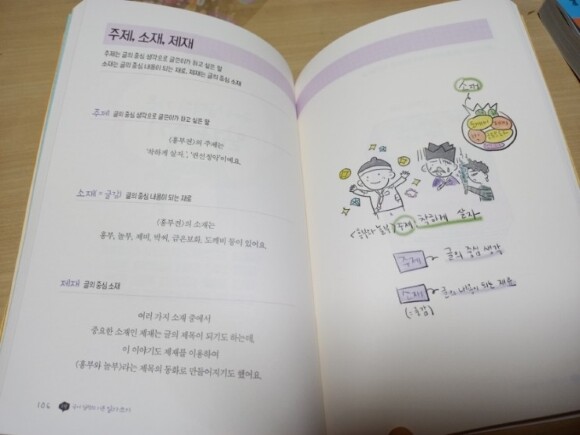 주제, 소재, 제재
주제는 글의 중심 생각으로 글쓴이가 하고 싶은 말
소재는 글의 중심 내용이 되는 재료, 제재는 글의 중심 소재
주제 글의 중심 생각으로 글쓴이가 하고 싶은 말
〈흥부전〉의 주제는
'착하게 살자.', '권선징악'이에요.
소재=글감 글의 중심 내용이 되는 재료
〈흥부전〉의 소재는
흥부, 놀부, 제비, 박씨, 금은보화, 도깨비 등이 있어요.
제재 글의 중심 소재
여러 가지 소재 중에서
중요한 소재인 제재는 글의 제목이 되기도 하는데,
이 이야기도 제재를 이용하여
〈흥부와 놀부〉라는 제목의 동화로 만들어지기도 했어요.
106
소재
주제 착하게 살자
주제 글의 중심 생각
소재 글의 내용이 되는 재료
(=글감)